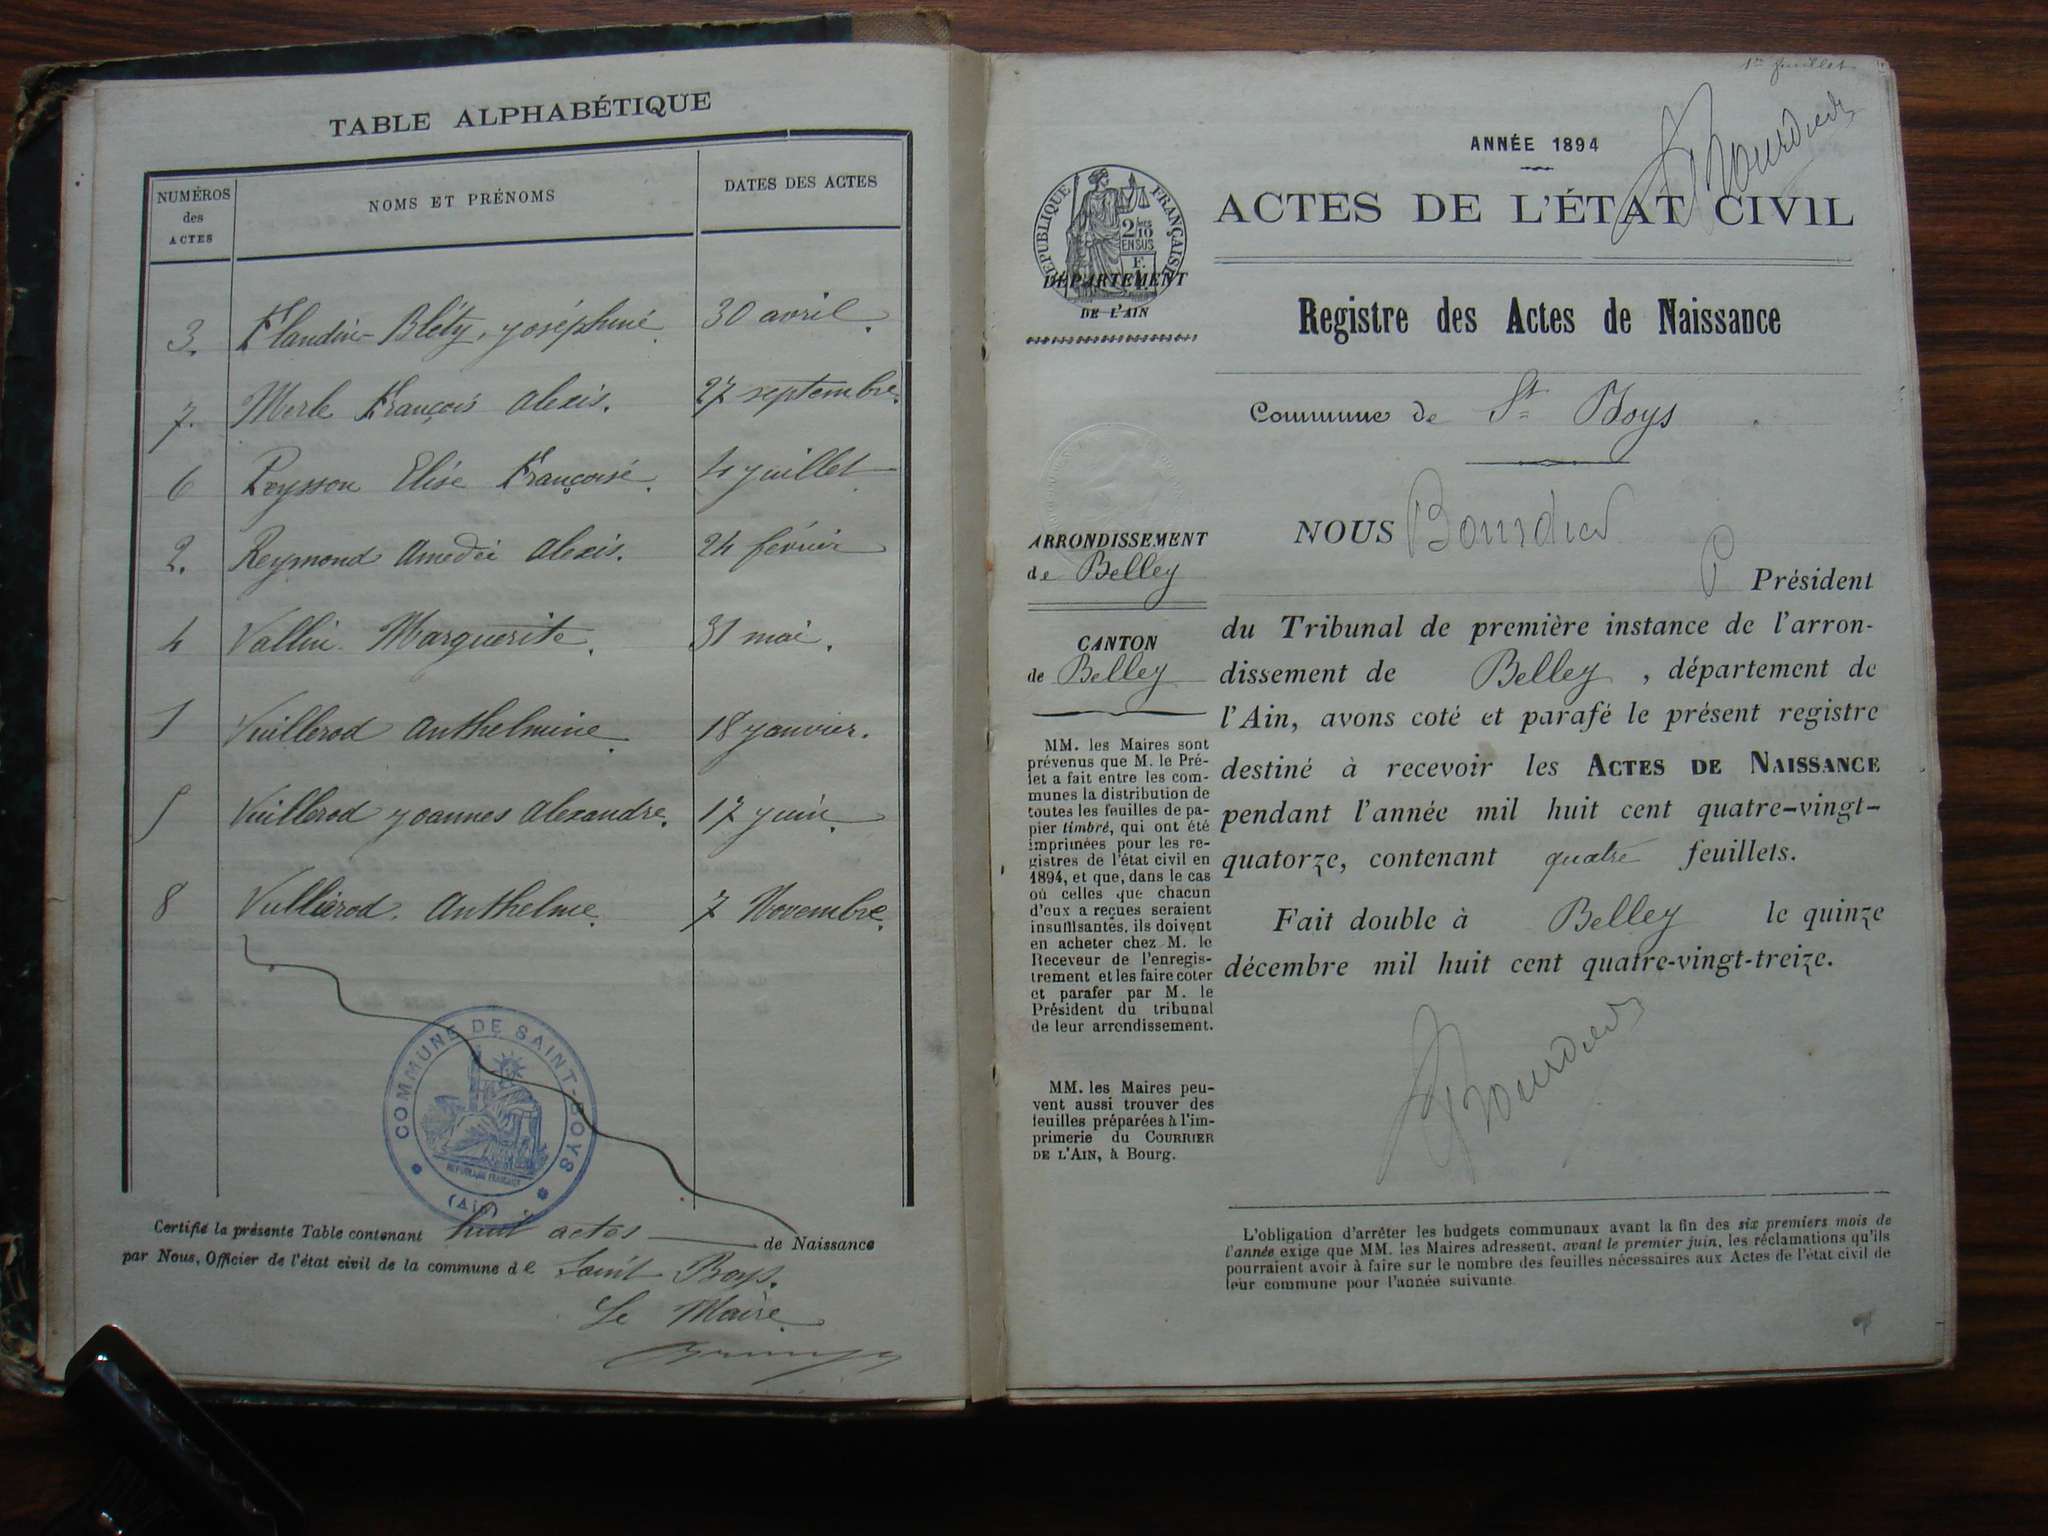 TABLE ALPHABÉTIQUE
NUMÉROS des ACTES NOMS ET PRÉNOMS DATES DES ACTES
3. Flandin-Bléty, Joséphine. 30 avril.
7. Merle François Alexis. 27 septembre.
6 Peysson Elise Françoise. 4 juillet
2. Reymond Amedée Alexis. 24 février
4 Vallin Marguerite. 31 mai.
1 Vuillerod Anthelmine. 18 janvier.
5 Vuillerod Joannes Alexandre. 17 juin.
8 Vullierod. Anthelme. 7 Novembre.
COMMUNE DE SAINT-BOYS
RÉPUBLIQUE FRANÇAISE
(Ain)
Certifié la présente Table contenant huit actes de Naissance
par Nous, Officier de l'état civil de la commune de Saint Boys.
Le Maire
1er feuillet
Bourdier
ANNÉE 1894
ACTES DE L'ÉTAT CIVIL
RÉPUBLIQUE FRANÇAISE
2/10 EN SUS
DÉPARTEMENT
DE L'AIN
Registre des Actes de Naissance
Commune de St Boys
ARRONDISSEMENT
de Belley
CANTON
de Belley
MM. les Maires sont
prévenus que M. le Pré-
fet a fait entre les com-
munes la distribution de
toutes les feuilles de pa-
pier timbré, qui ont été
imprimées pour les re-
gistres de l'état civil en
1894, et que, dans le cas
où celles que chacun
d'eux a reçues seraient
insuffisantes, ils doivent
en acheter chez M. le
Receveur de l'enregis-
trement et les faire coter
et parafer par M. le
Président du tribunal
de leur arrondissement.
MM. les Maires peu-
vent aussi trouver des
feuilles préparées à l'im-
primerie du COURRIER
DE L'AIN, à Bourg.
NOUS Bourdier
P Président
du Tribunal de première instance de l'arron-
dissement de Belley, département de
l'Ain, avons coté et parafé le présent registre
destiné à recevoir les ACTES DE NAISSANCE
pendant l'année mil huit cent quatre-vingt-
quatorze, contenant quatre feuillets.
Fait double à Belley le quinze
décembre mil huit cent quatre-vingt-treize.
Bourdier
L'obligation d'arrêter les budgets communaux avant la fin des six premiers mois de
l'année exige que MM. les Maires adressent, avant le premier juin, les réclamations qu'ils
pourraient avoir à faire sur le nombre des feuilles nécessaires aux Actes de l'état civil de
leur commune pour l'année suivante.